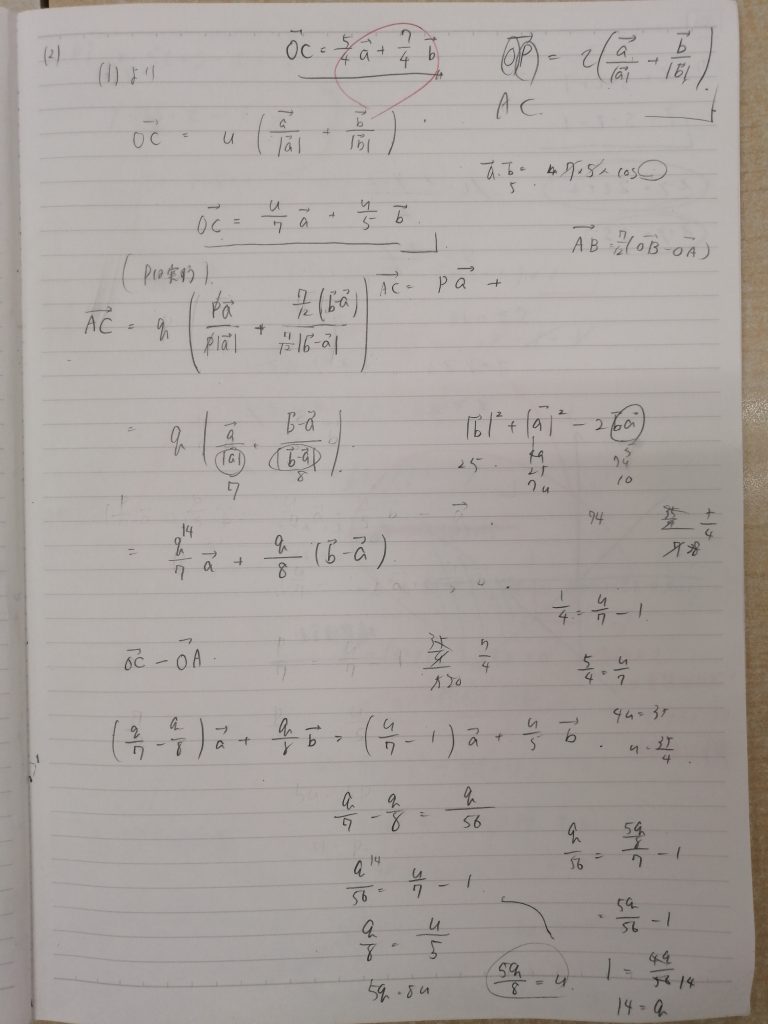 (2)
(1) より
OC→ = 5/4 a→ + 7/4 b→
OP→ = z( a→/|a→| + b→/|b→| )
AC
OC→ = u ( a→/|a→| + b→/|b→| )
a→・b→ =
5
OC→ = u/7 a→ + u/5 b→
AB→ = 7/12 (OB→ - OA→)
AC→ = pa→ +
AC→ = q ( pa→/p|a→| + 7/12(b→-a→) / 7/12|b→-a→| )
= q ( a→/|a→| + b→-a→/|b→-a→| )
7 8
|b→|² + |a→|² - 2b→a→
25 49 5
25 10
74
74
1/4
= q/7 a→ + q/8 (b→ - a→)
14
1/4 = u/7 - 1
OC→ - OA→
7/4
5/4 = u/7
(q/7 - q/8) a→ + q/8 b→ = (u/7 - 1) a→ + u/5 b→
4u = 35
u = 35/4
q/7 - q/8 = q/56
q/56 = 5q/8/7 - 1
q/56 = u/7 - 1
14
= 5q/56 - 1
q/8 = u/5
5q = 8u
5q/8 = u
1 = 4q/56 14
14 = q